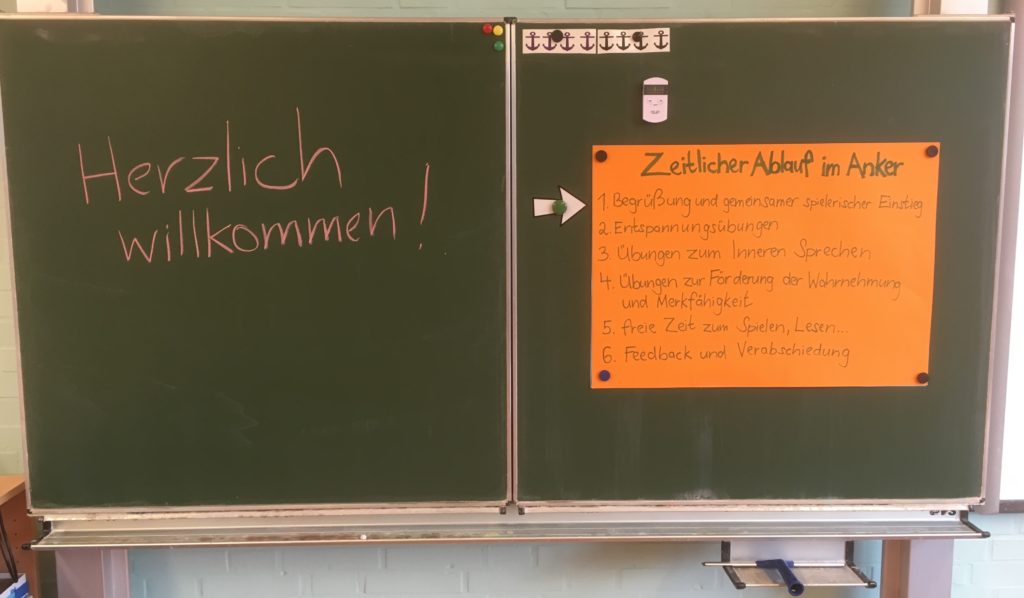 Herzlich
willkommen!
Zeitlicher Ablauf im Anker
1. Begrüßung und gemeinsamer spielerischer Einstieg
2. Entspannungsübungen
3. Übungen zum Inneren Sprechen
4. Übungen zur Förderung der Wahrnehmung
und Merkfähigkeit
5. freie Zeit zum Spielen, Lesen...
6. Feedback und Verabschiedung